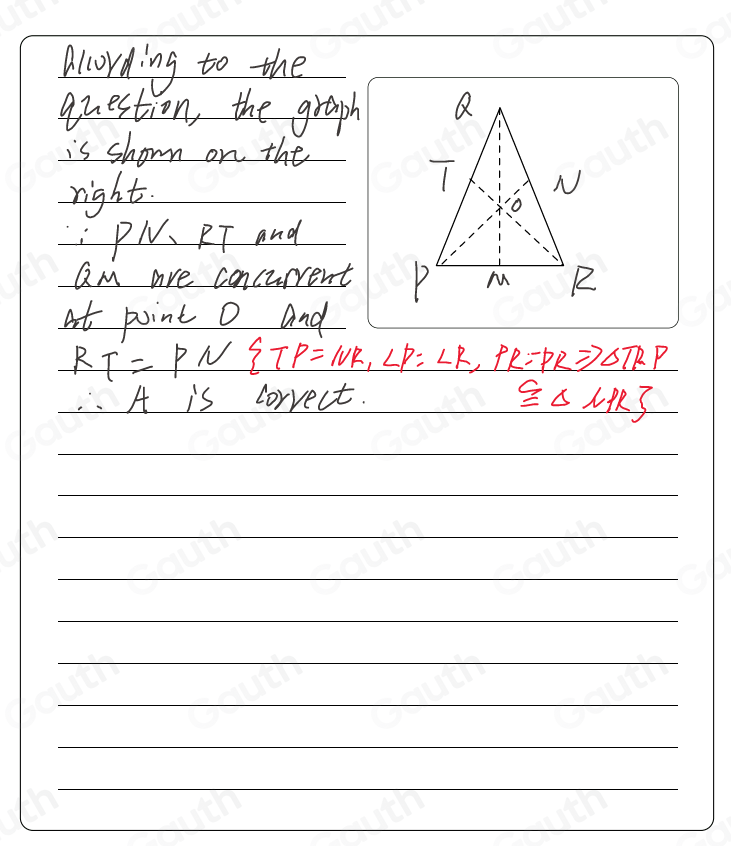 According to the
question, the graph
is shown on the
right.
∵ PN、RT and
QM are concurrent
at point O and
RT = PN {TP=NR, ∠P=∠R, PR=PR⇒△TRP
∴ A is correct. ≅ △NPR}
Q
T
N
O
P
M
R
Gauth